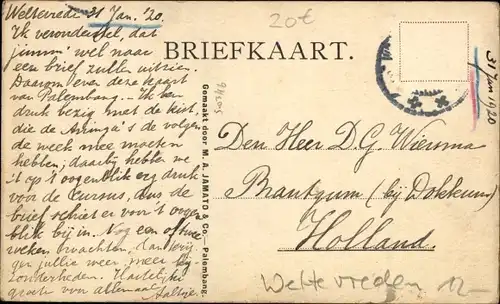 Weltevrede 31 Jan. '20.
Ik veronderstel, dat
jimm' wel naar
een brief zullen uitzien.
Daarom even deze kaart
van Palembang. Ik ben
druk bezig met de kist,
die de de volgen
de week mee moeten
hebben; daarbij hebben we
't op 't oogenblik erg druk
voor de cursus, dus de
brief schiet er voor 't oogen
blik bij in. Nog een of twee
weken wachten, dan
jullie weer meer bij
zonderheden. Hartelijke
groete voor allemaal. Aaltje.
20€
BRIEFKAART.
31 Jan 1920
Gemaakt door M. A. JAMATO & Co.—Palembang.
Den Heer D. G. Wiersma
Brantgum (bij Dokkum)
Holland.
Weltevreden 12-